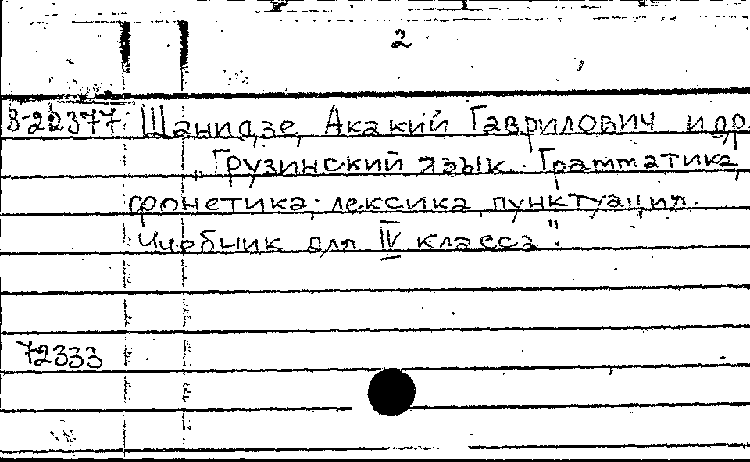 2
З-22377 Шанидзе, Акакий Гаврилович и др.
„Грузинский язык. Грамматика,
фонетика, лексика, пунктуация.
Учебник для IV класса".
72333